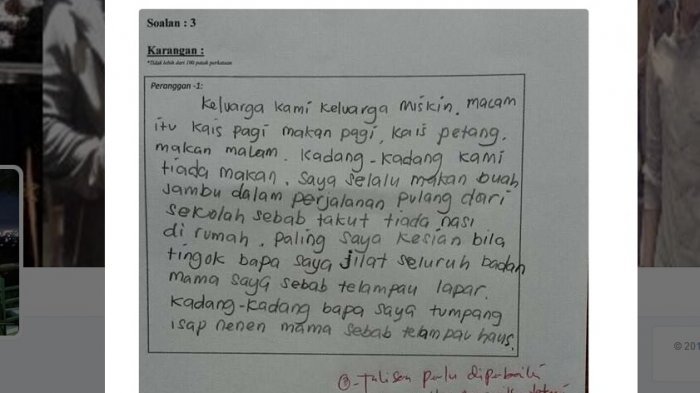 Soalan : 3
Karangan :
*Tidak lebih dari 100 patah perkataan
Peranggan -1:
Keluarga kami keluarga miskin. macam
itu kais pagi makan pagi, kais petang.
makan malam. Kadang-kadang kami
tiada makan. saya selalu makan buah
jambu dalam perjalanan pulang dari
sekolah sebab takut tiada nasi
di rumah. paling saya kesian bila
tingok bapa saya jilat seluruh badan
mama saya sebab telampau lapar.
Kadang-kadang bapa saya tumpang
isap nenen mama sebab telampau haus.
Tulisan perlu diperbaiki
© 201